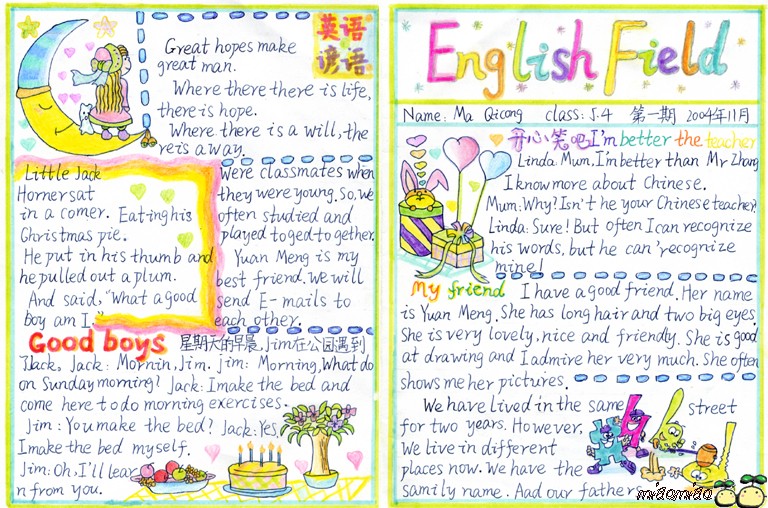 英语
谚语
Great hopes make
great man.
Where there there is life,
there is hope.
Where there is a will, the
re is a way.
Little Jack
Horner sat
in a corner. Eating his
Christmas pie.
He put in his thumb and
he pulled out a plum.
And said, "what a good
boy am I."
were classmates when
they were young. So, we
often studied and
played toged to gether.
Yuan Meng is my
best friend. we will
send E-mails to
each other.
Good boys 星期天的早晨, Jim在公园遇到
了Jack, Jack: Mornin, Jim. Jim: Morning, What do
on Sunday morning? Jack: I make the bed and
come here to do morning exercises.
Jim: You make the bed? Jack: Yes,
I make the bed myself.
Jim: Oh, I'll lear
n from you.
English Field
Name: Ma Qicong class: 5.4 第一期 2004年11月
开心笑吧 I'm better the teacher
Linda Mum, I'm better than Mr Zhang
I know more about Chinese.
Mum: Why? Isn't he your Chinese teacher?
Linda: Sure! But often I can recognize
his words, but he can 'recognize
mine!
My friend I have a good friend. Her name
is Yuan Meng. She has long hair and two big eyes.
She is very lovely, nice and friendly. She is good
at drawing and I admire her very much. She often
shows me her pictures.
We have lived in the same street
for two years. However,
we live in different
places now. We have the
samily name. Aad our fathers
miaomiao